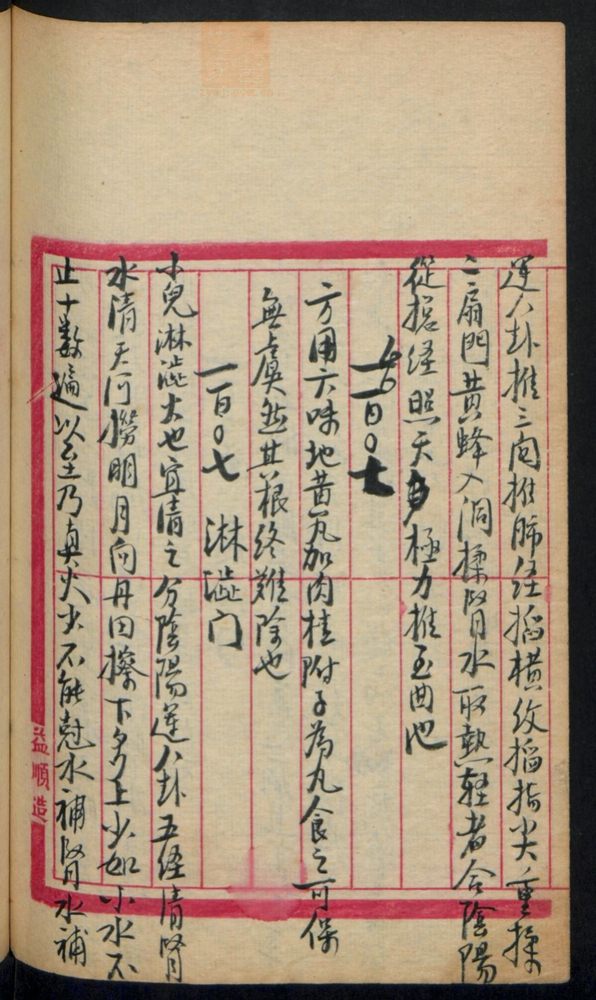 運八卦推三関推肺经掐横纹掐指尖重揉
二扇門黄蜂入洞揉腎水取熱輕者合陰陽
從掐经照天極力推至曲池
一百〇七
方用六味地黄丸加肉桂附子為丸食之可保
無虞然其根终難除也
一百〇七 淋澁门
小兒淋澁火也宜清之分陰陽運八卦五经清腎
水清天河撈明月向丹田擦下多上少如小水不
止十數遍以至乃真火少不能尅水補腎水補
益順造